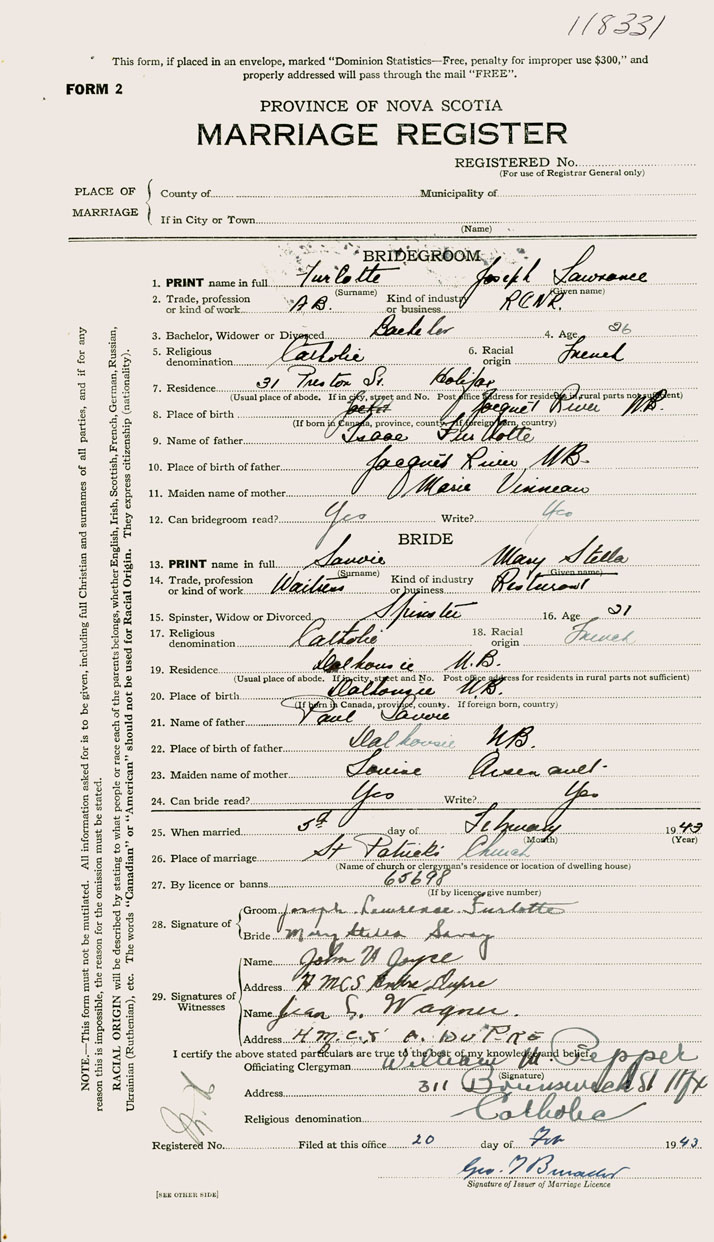 118331
This form, if placed in an envelope, marked "Dominion Statistics—Free, penalty for improper use $300," and
properly addressed will pass through the mail "FREE".
FORM 2
PROVINCE OF NOVA SCOTIA
MARRIAGE REGISTER
REGISTERED No.
(For use of Registrar General only)
PLACE OF MARRIAGE
County of Municipality of
If in City or Town
(Name)
BRIDEGROOM
1. PRINT name in full Furlotte Joseph Lawrance
(Surname) (Given name)
2. Trade, profession or kind of work A.B. Kind of industry or business R.C.N.R.
3. Bachelor, Widower or Divorced Bachelor 4. Age 26
5. Religious denomination Catholic 6. Racial origin French
7. Residence 31 Preston St. Halifax
(Usual place of abode. If in city, street and No. Post office address for residents in rural parts not sufficient)
8. Place of birth Jacquet River N.B.
(If born in Canada, province, county. If foreign born, country)
9. Name of father Isaac Furlotte
10. Place of birth of father Jacques River N.B.
11. Maiden name of mother Marie Vinneau
12. Can bridegroom read? Yes Write? Yes
BRIDE
13. PRINT name in full Savoie Mary Stella
(Surname) (Given name)
14. Trade, profession or kind of work Waitress Kind of industry or business Resturant
15. Spinster, Widow or Divorced Spinster 16. Age 21
17. Religious denomination Catholic 18. Racial origin French
19. Residence Dalhousie N.B.
(Usual place of abode. If in city, street and No. Post office address for residents in rural parts not sufficient)
20. Place of birth Dalhousie N.B.
(If born in Canada, province, county. If foreign born, country)
21. Name of father Paul Savoie
22. Place of birth of father Dalhousie N.B.
23. Maiden name of mother Louise Arsenault
24. Can bride read? Yes Write? Yes
25. When married 5th day of February 1943
(Month) (Year)
26. Place of marriage St Patrick's Church
(Name of church or clergyman's residence or location of dwelling house)
27. By licence or banns 65698
(If by licence, give number)
28. Signature of
Groom Joseph Lawrence Furlotte
Bride Mary Stella Savoy
29. Signatures of Witnesses
Name John W Joyce
Address H M C S Andre Dupre
Name Jean L. Wagner.
Address H.M.C.S A. DUPRE
I certify the above stated particulars are true to the best of my knowledge and belief.
Officiating Clergyman William M. Pepper
(Signature)
Address 311 Brunswick St Hfx
Religious denomination Catholic
Registered No. Filed at this office 20 day of Feb 1943
Geo.
Signature of Issuer of Marriage Licence
[SEE OTHER SIDE]
NOTE.—This form must not be mutilated. All information asked for is to be given, including full Christian and surnames of all parties, and if for any
reason this is impossible, the reason for the omission must be stated.
RACIAL ORIGIN will be described by stating to what people or race each of the parents belongs, whether English, Irish, Scottish, French, German, Russian,
Ukrainian (Ruthenian), etc. The words "Canadian" or "American" should not be used for Racial Origin. They express citizenship (nationality).